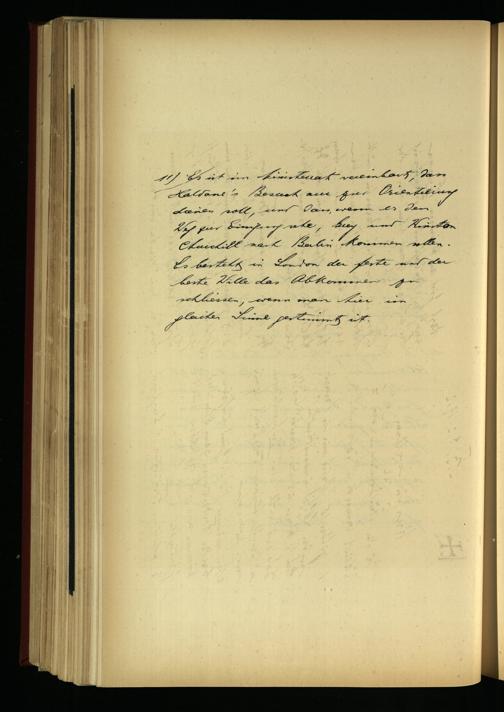 11) Es ist im Ministerrat vereinbart, dass
Haldane's Besuch nur zur Orientierung
dienen soll, und dass, wenn er den
Weg zur Einigung sehe, Grey und Winston
Churchill nach Berlin kommen sollen.
Es besteht in London der feste und der
beste Wille das Abkommen zu
schliessen, wenn man hier im
gleichen Sinne gestimmt ist.